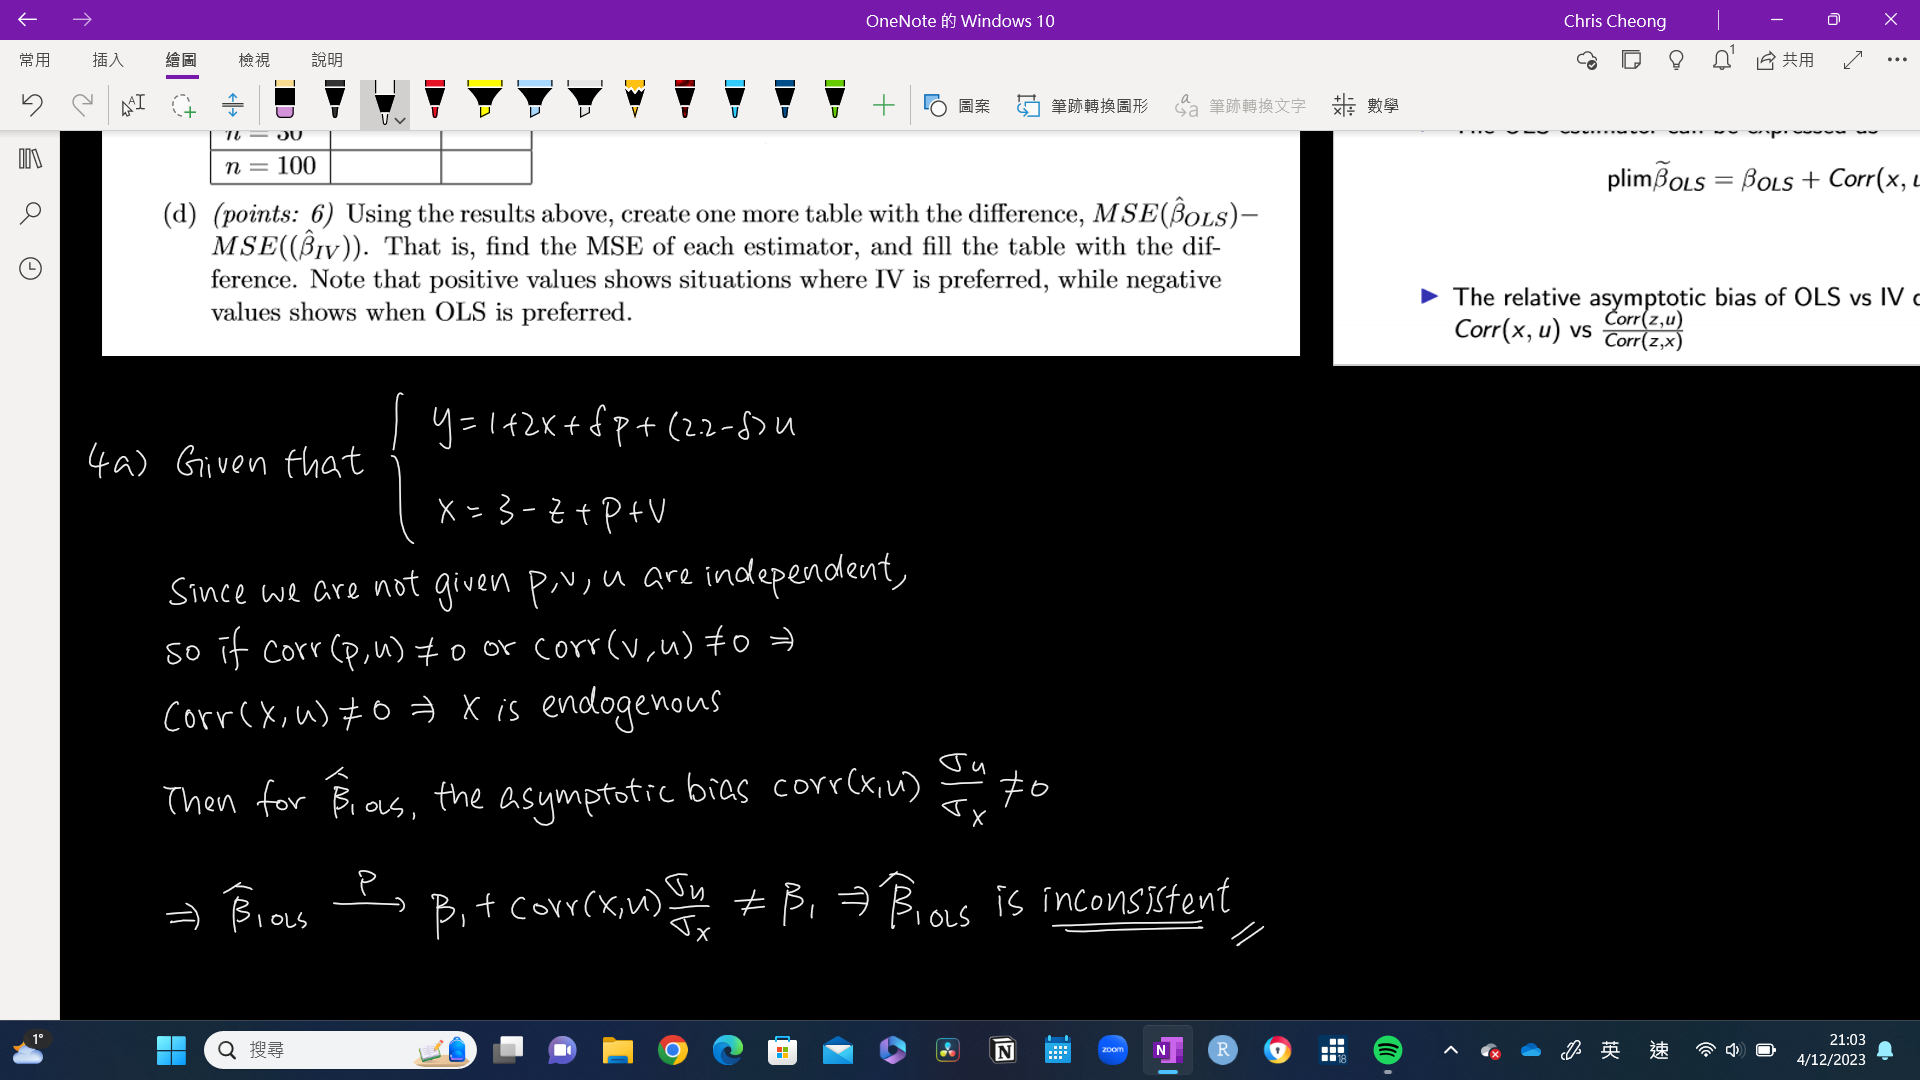 OneNote 的 Windows 10
Chris Cheong
常用 插入 繪圖 檢視 說明
1
共用
圖案 筆跡轉換圖形 筆跡轉換文字 數學
n = 50
n = 100
(d) (points: 6) Using the results above, create one more table with the difference, MSE(β̂_OLS)−
MSE((β̂_IV)). That is, find the MSE of each estimator, and fill the table with the dif-
ference. Note that positive values shows situations where IV is preferred, while negative
values shows when OLS is preferred.
The OLS estimator can be expressed as
plim β̃_OLS = β_OLS + Corr(x, u
▶ The relative asymptotic bias of OLS vs IV
Corr(x, u) vs Corr(z,u)/Corr(z,x)
4a) Given that { y = 1+2x+δp+(2.2-δ)u
x = 3-z+p+v
Since we are not given p,v,u are independent,
so if corr(p,u) ≠ 0 or corr(v,u) ≠ 0 ⇒
Corr(x,u) ≠ 0 ⇒ x is endogenous
Then for β̂₁ OLS, the asymptotic bias corr(x,u) σu/σx ≠ 0
⇒ β̂₁ OLS →ᵖ β₁ + corr(x,u) σu/σx ≠ β₁ ⇒ β̂₁ OLS is inconsistent //
1°
搜尋
zoom
N
R
18
英 速
21:03
4/12/2023